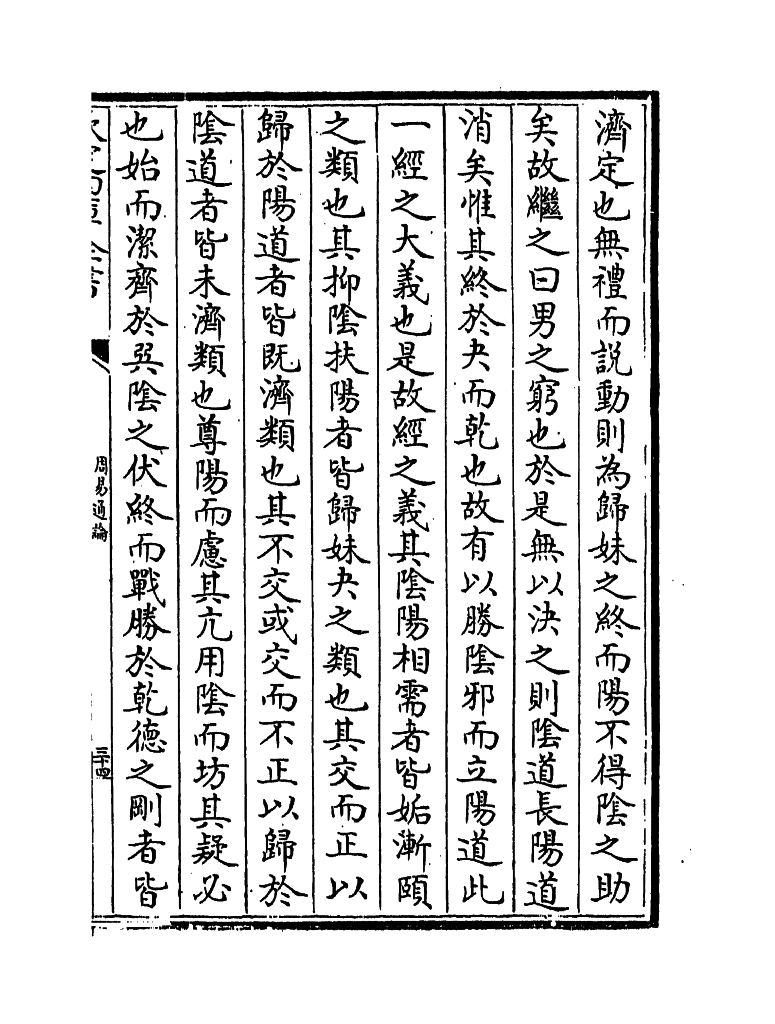 濟定也無禮而説動則為歸妹之終而陽不得陰之助
矣故繼之曰男之窮也於是無以決之則陰道長陽道
消矣惟其終於夬而乾也故有以勝陰邪而立陽道此
一經之大義也是故經之義其陰陽相需者皆姤漸頤
之類也其抑陰扶陽者皆歸妹夬之類也其交而正以
歸於陽道者皆既濟類也其不交或交而不正以歸於
陰道者皆未濟類也尊陽而慮其亢用陰而坊其疑必
也始而潔齊於巽陰之伏終而戰勝於乾德之剛者皆
周易通論
三十四